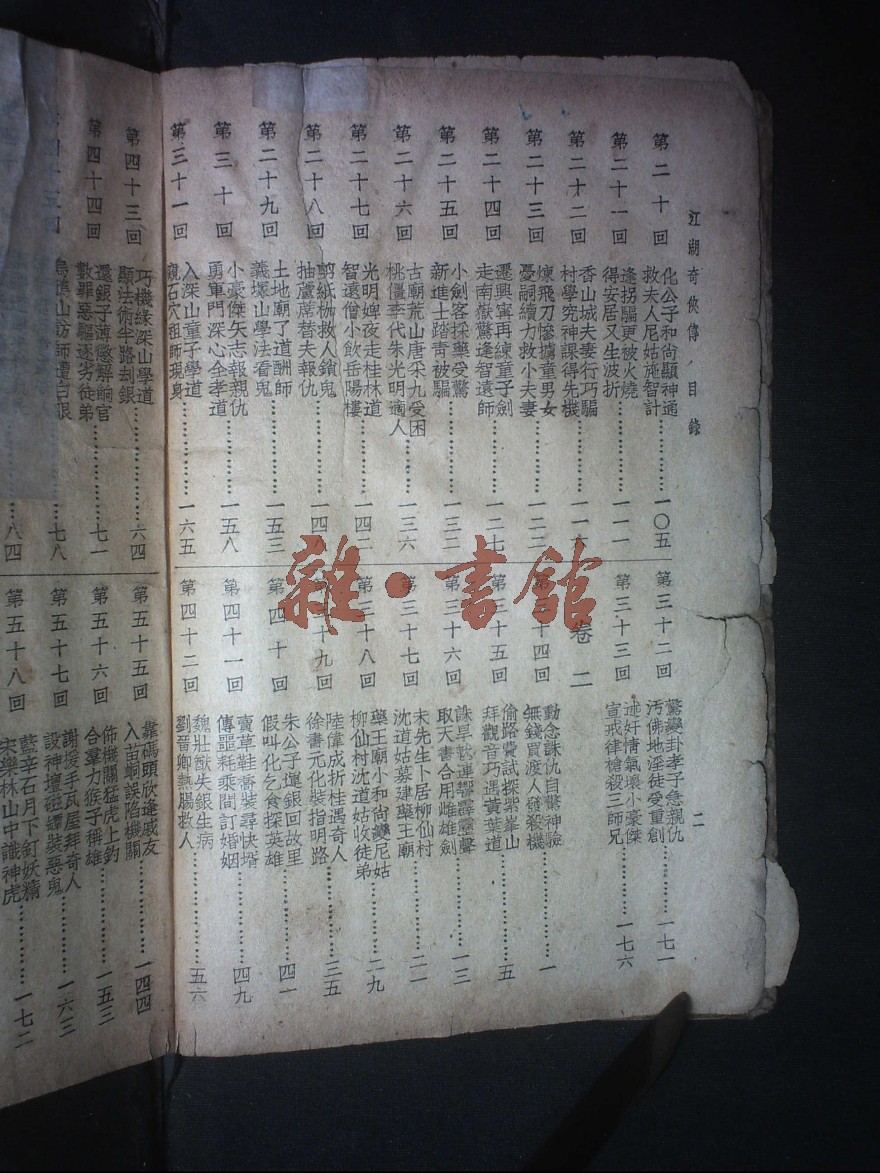 江湖奇俠傳 目錄
二
第二十回 化公子和尚顯神通 救夫人尼姑施智計 一〇五
第二十一回 逢拐騙更被火燒 得安居又生波折 一一一
第二十二回 香山城夫妻行巧騙 村學究神課得先機 一一六
第二十三回 煉飛刀慘擄童男女 憂嗣續力救小夫妻 一二二
第二十四回 遷興寧再練童子劍 走南嶽驚逢智遠師 一二七
第二十五回 小劍客採藥受驚 新進士踏青被騙 一三二
第二十六回 古廟荒山唐采九受困 桃僵李代朱光明適人 一三六
第二十七回 光明婢夜走桂林道 智遠僧小飲岳陽樓 一四二
第二十八回 剪紙枷救人鎖鬼 抽蘆席替夫報仇 一四
第二十九回 土地廟了道酬師 義塚山學法看鬼 一五三
第三十回 小豪傑矢志報親仇 勇軍門深心全孝道 一五八
第三十一回 入深山童子學道 窺石穴祖師現身 一六五
第三十二回 驚變卦孝子急親仇 汚佛地淫徒受重創 一七一
第三十三回 述奸情氣壞小豪傑 宣戒律槍殺三師兄 一七六
卷二
第三十四回 動念誅仇自驚神驗 無錢買渡人發殺機 一
第三十五回 偷路費試探紫峯山 拜觀音巧遇黃葉道 五
第三十六回 誅旱魃連響霹靂聲 取天書合用雌雄劍 一三
第三十七回 宋先生卜居柳仙村 沈道姑募建藥王廟 二一
第三十八回 藥王廟小和尚變尼姑 柳仙村沈道姑收徒弟 二九
第三十九回 陸偉成折桂遇奇人 徐書元化裝指明路 三五
第四十回 朱公子運銀回故里 假叫化乞食探英雄 四一
第四十一回 賣草鞋喬裝尋快壻 傳噩耗乘間訂婚姻 四九
第四十二回 魏壯猷失銀生病 劉晉卿熱腸救人 五六
第四十三回 巧機緣深山學道 顯法術半路刦銀 六四
第四十四回 還銀子薄懲解餉官 數罪惡驅逐劣徒弟 七一
山訪師遭白眼 七八
八四
第五十五回 靠碼頭欣逢戚友 入苗峒誤陷機關 一四四
第五十六回 佈機關猛虎上釣 合羣力猴子稱雄 一五三
第五十七回 謝援手瓦屋拜奇人 設神壇磁罈裝惡鬼 一六三
第五十八回 藍辛石月下釘妖精 宋樂林山中識神虎 一七二
雜·書館